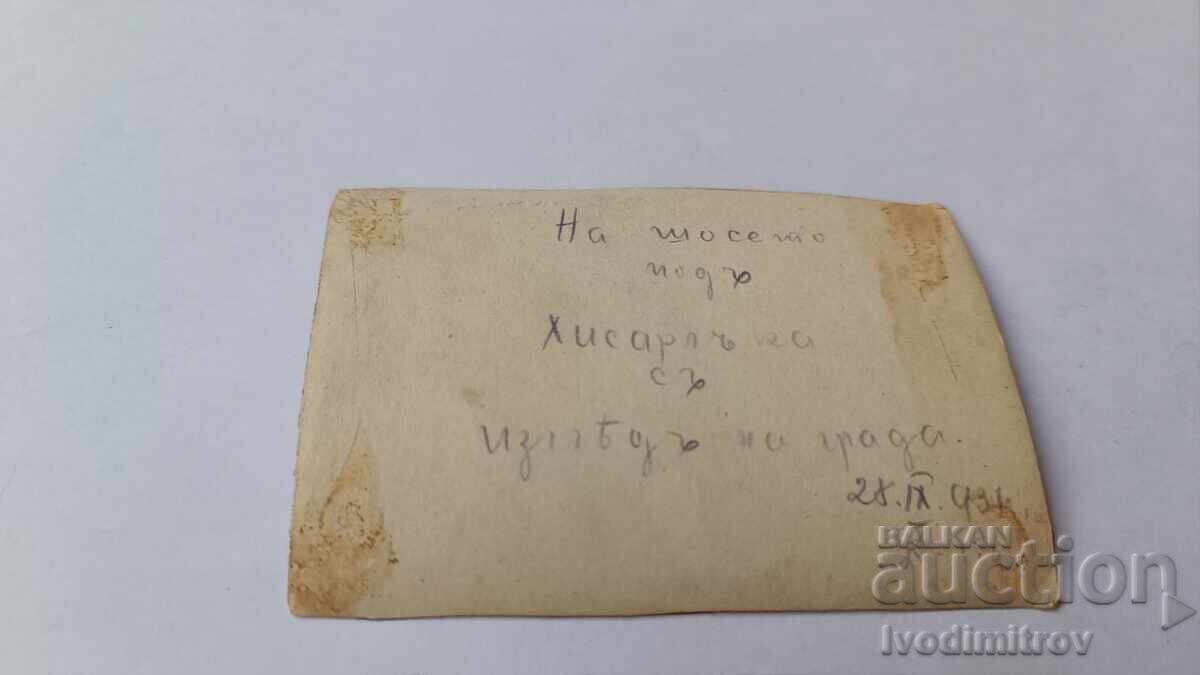 На шосето
подъ
Хисарлъка
съ
изглѣдъ на града.
28.IX.931
BALKAN
auction
Ivodimitrov